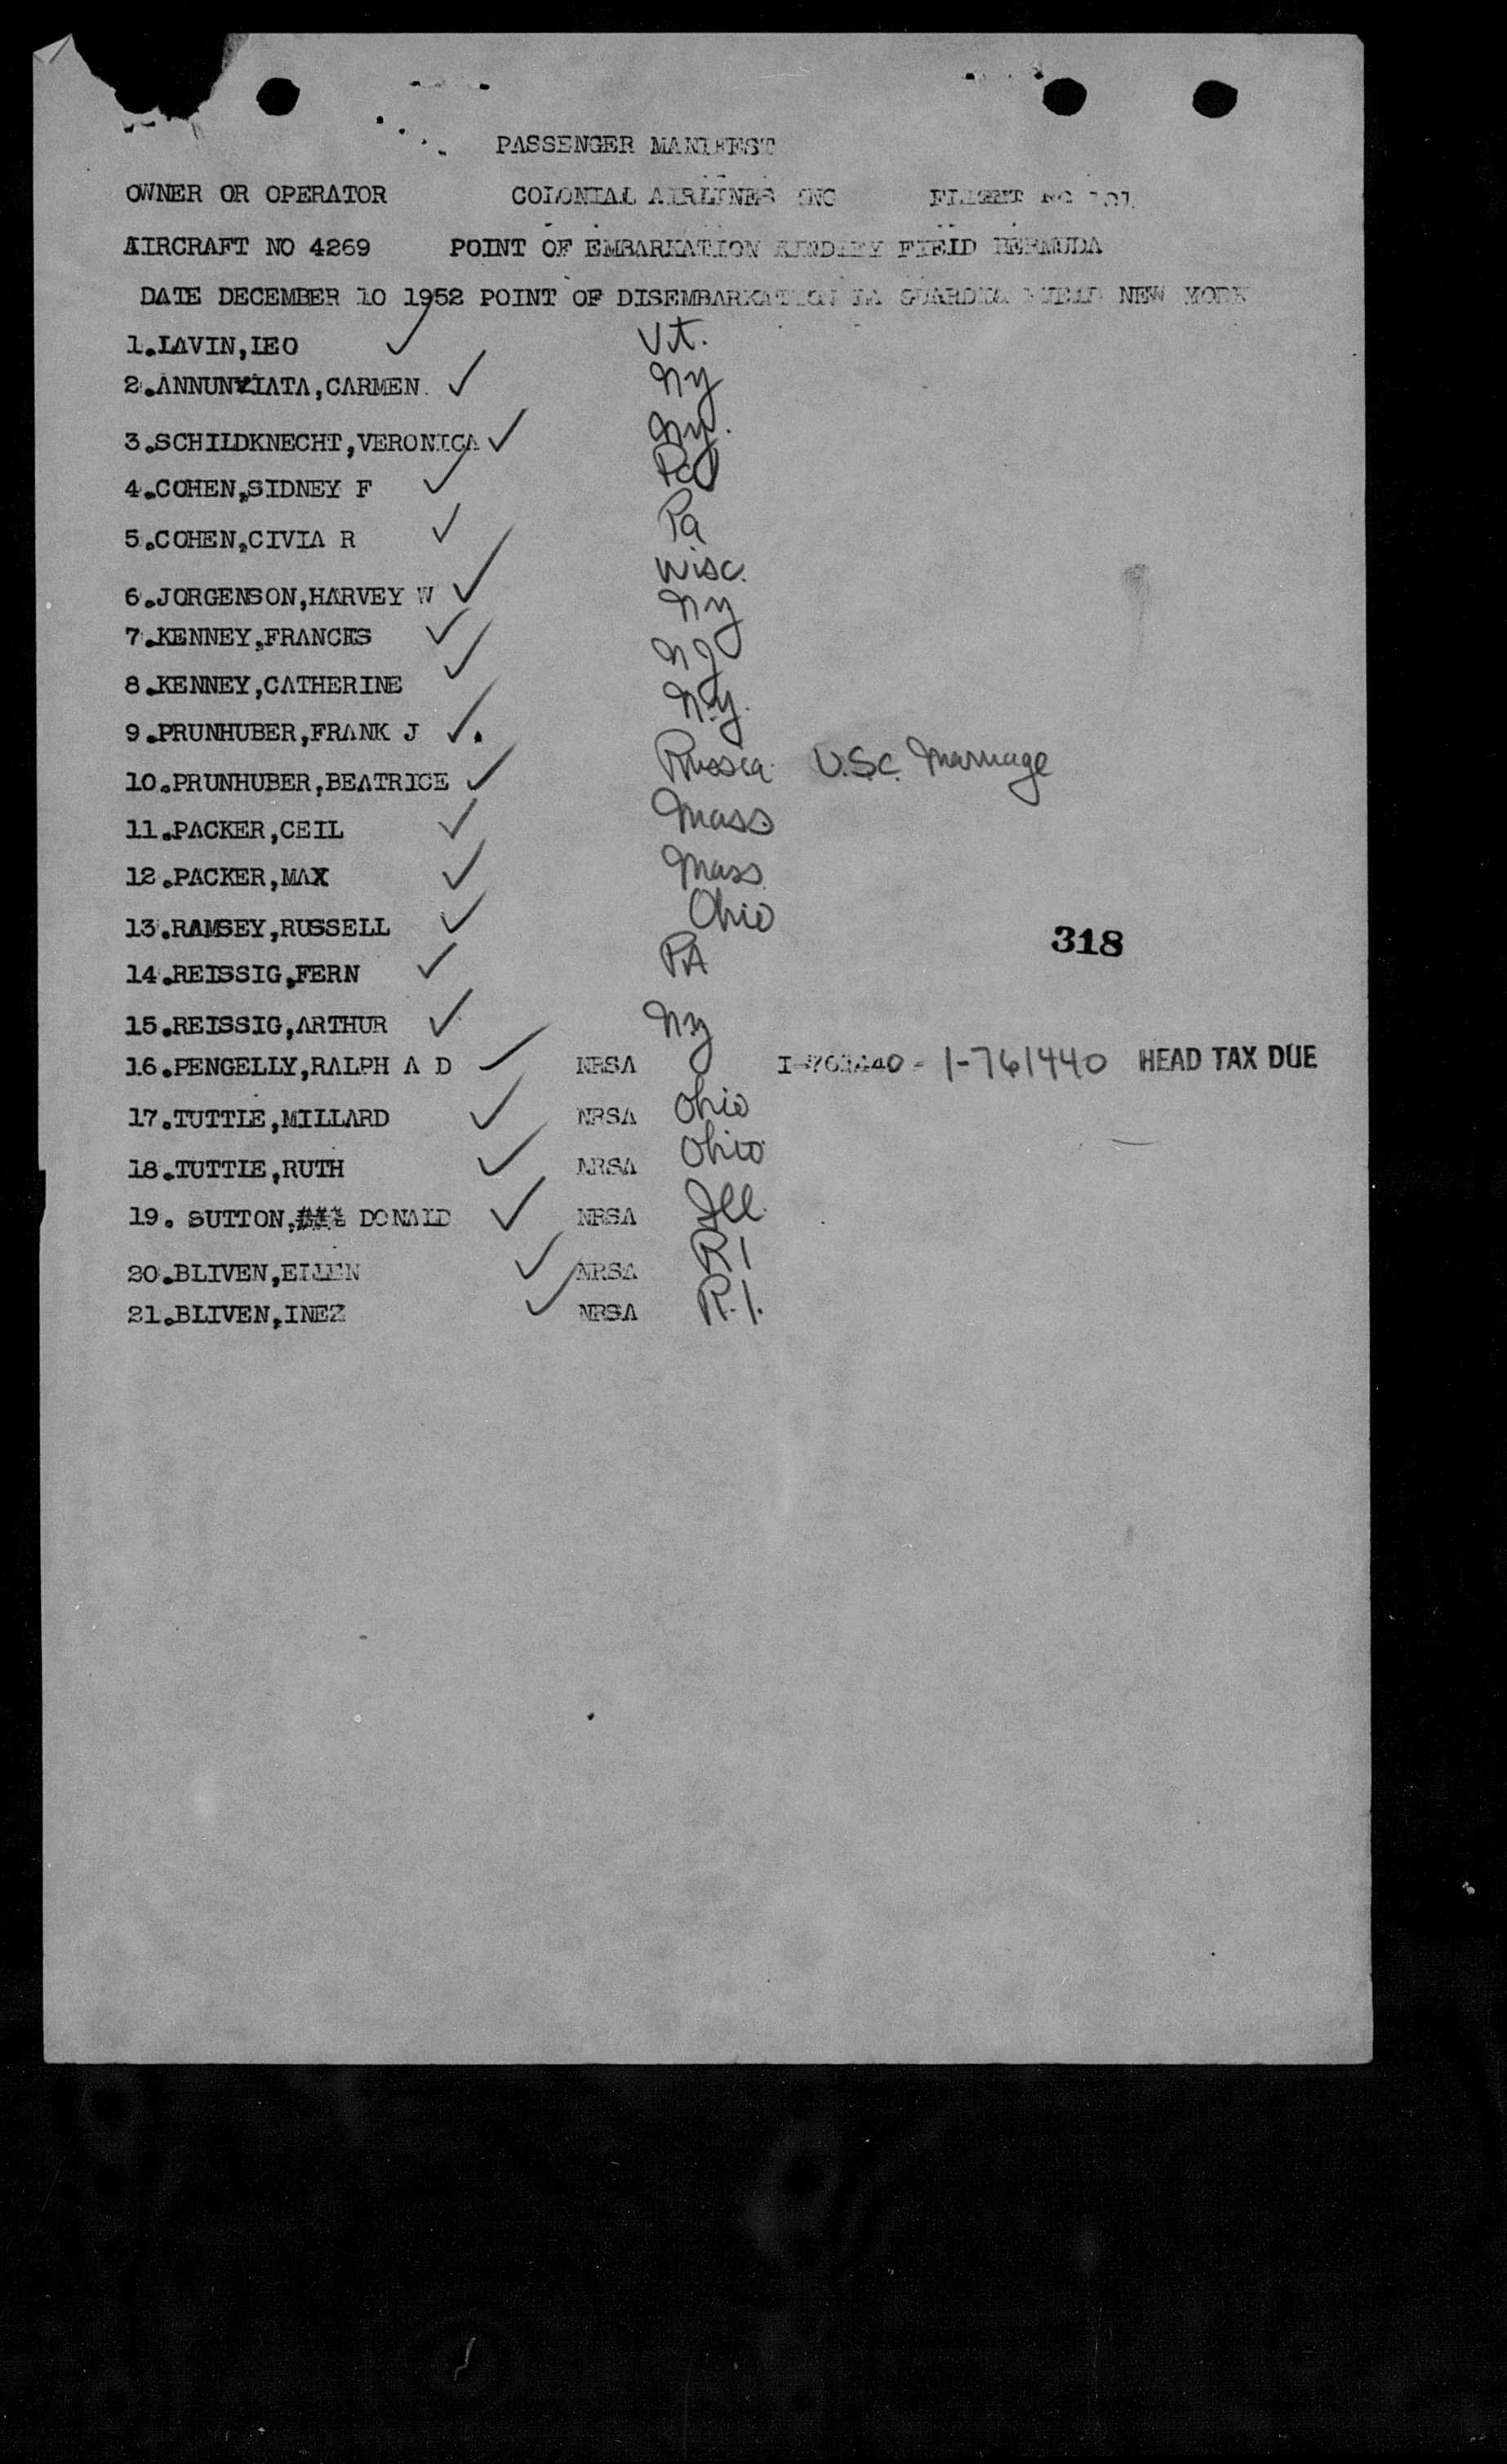 PASSENGER MANIFEST
OWNER OR OPERATOR COLONIAL AIRLINES INC FLIGHT NO 101
AIRCRAFT NO 4269 POINT OF EMBARKATION KINDLEY FIELD BERMUDA
DATE DECEMBER 10 1952 POINT OF DISEMBARKATION LA GUARDIA FIELD NEW YORK
1.LAVIN,LEO ✓ Vt.
2.ANNUNZIATA,CARMEN. ✓ Ny
3.SCHILDKNECHT,VERONICA ✓ Ny.
4.COHEN,SIDNEY F ✓ Pa
5.COHEN,CIVIA R ✓ Pa
6.JORGENSON,HARVEY W ✓ Wisc.
7.KENNEY,FRANCES ✓ Ny
8.KENNEY,CATHERINE ✓
9.PRUNHUBER,FRANK J ✓. N.Y.
10.PRUNHUBER,BEATRICE ✓ Russia. U.S.C. Marriage
11.PACKER,CEIL ✓ Mass
12.PACKER,MAX ✓ Mass
13.RAMSEY,RUSSELL ✓ Ohio
318
14.REISSIG,FERN ✓ PA
15.REISSIG,ARTHUR ✓ Ny
16.PENGELLY,RALPH A D ✓ NRSA I-761440 - 1-761440 HEAD TAX DUE
17.TUTTLE,MILLARD ✓ NRSA Ohio
18.TUTTLE,RUTH ✓ NRSA Ohio
19. SUTTON, DONALD ✓ NRSA Ill.
20.BLIVEN,EILEEN ✓ NRSA R I
21.BLIVEN,INEZ ✓ NRSA R.I.